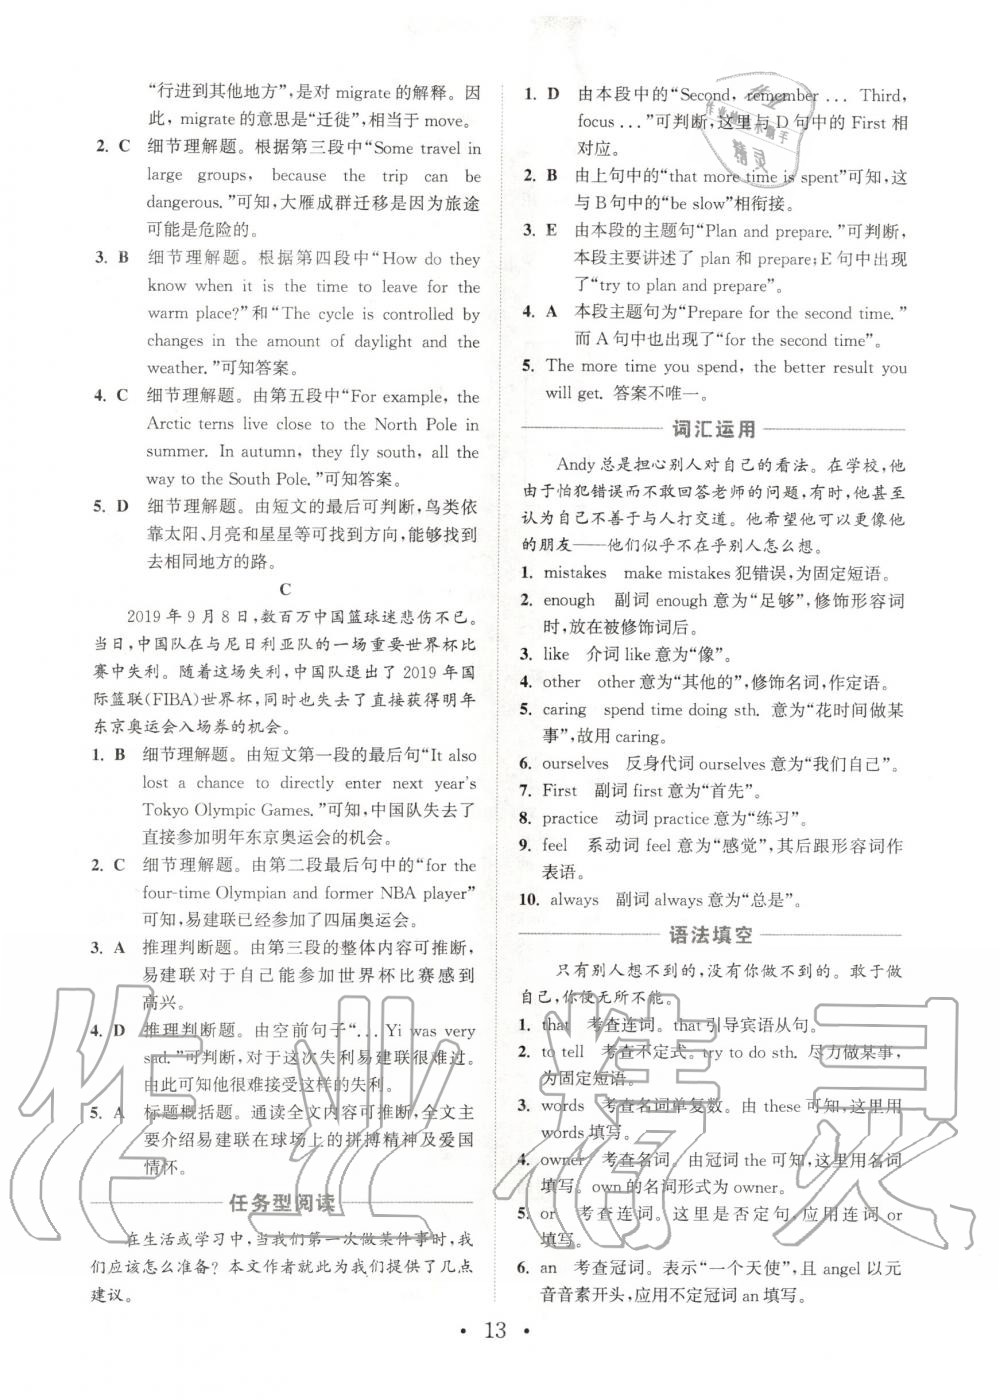 “行进到其他地方”，是对 migrate 的解释。因
此，migrate 的意思是“迁徙”，相当于 move。
2. C 细节理解题。根据第三段中“Some travel in
large groups, because the trip can be
dangerous.”可知，大雁成群迁移是因为旅途
可能是危险的。
3. B 细节理解题。根据第四段中“How do they
know when it is the time to leave for the
warm place?”和“The cycle is controlled by
changes in the amount of daylight and the
weather.”可知答案。
4. C 细节理解题。由第五段中“For example, the
Arctic terns live close to the North Pole in
summer. In autumn, they fly south, all the
way to the South Pole.”可知答案。
5. D 细节理解题。由短文的最后可判断，鸟类依
靠太阳、月亮和星星等可找到方向，能够找到
去相同地方的路。
C
2019 年 9 月 8 日，数百万中国篮球迷悲伤不已。
当日，中国队在与尼日利亚队的一场重要世界杯比
赛中失利。随着这场失利，中国队退出了 2019 年国
际篮联(FIBA)世界杯，同时也失去了直接获得明年
东京奥运会入场券的机会。
1. B 细节理解题。由短文第一段的最后句“It also
lost a chance to directly enter next year's
Tokyo Olympic Games.”可知，中国队失去了
直接参加明年东京奥运会的机会。
2. C 细节理解题。由第二段最后句中的“for the
four-time Olympian and former NBA player”
可知，易建联已经参加了四届奥运会。
3. A 推理判断题。由第三段的整体内容可推断，
易建联对于自己能参加世界杯比赛感到
高兴。
4. D 推理判断题。由空前句子“... Yi was very
sad.”可判断，对于这次失利易建联很难过。
由此可知他很难接受这样的失利。
5. A 标题概括题。通读全文内容可推断，全文主
要介绍易建联在球场上的拼搏精神及爱国
情怀。
任务型阅读
在生活或学习中，当我们第一次做某件事时，我
们应该怎么准备？本文作者就此为我们提供了几点
建议。
1. D 由本段中的“Second, remember ... Third,
focus ...”可判断，这里与 D 句中的 First 相
对应。
2. B 由上句中的“that more time is spent”可知，这
与 B 句中的“be slow”相衔接。
3. E 由本段的主题句“Plan and prepare.”可判断，
本段主要讲述了 plan 和 prepare；E 句中出现
了“try to plan and prepare”。
4. A 本段主题句为“Prepare for the second time.”
而 A 句中也出现了“for the second time”。
5. The more time you spend, the better result you
will get. 答案不唯一。
词汇运用
Andy 总是担心别人对自己的看法。在学校，他
由于怕犯错误而不敢回答老师的问题，有时，他甚至
认为自己不善于与人打交道。他希望他可以更像他
的朋友——他们似乎不在乎别人怎么想。
1. mistakes make mistakes 犯错误，为固定短语。
2. enough 副词 enough 意为“足够”，修饰形容词
时，放在被修饰词后。
3. like 介词 like 意为“像”。
4. other other 意为“其他的”，修饰名词，作定语。
5. caring spend time doing sth. 意为“花时间做某
事”，故用 caring。
6. ourselves 反身代词 ourselves 意为“我们自己”。
7. First 副词 first 意为“首先”。
8. practice 动词 practice 意为“练习”。
9. feel 系动词 feel 意为“感觉”，其后跟形容词作
表语。
10. always 副词 always 意为“总是”。
语法填空
只有别人想不到的，没有你做不到的。敢于做
自己，你便无所不能。
1. that 考查连词。that 引导宾语从句。
2. to tell 考查不定式。try to do sth. 尽力做某事，
为固定短语。
3. words 考查名词单复数。由 these 可知，这里用
words 填写。
4. owner 考查名词。由冠词 the 可知，这里用名词
填写。own 的名词形式为 owner。
5. or 考查连词。这里是否定句，应用连词 or
填写。
6. an 考查冠词。表示“一个天使”，且 angel 以元
音音素开头，应用不定冠词 an 填写。
• 13 •
作业精灵